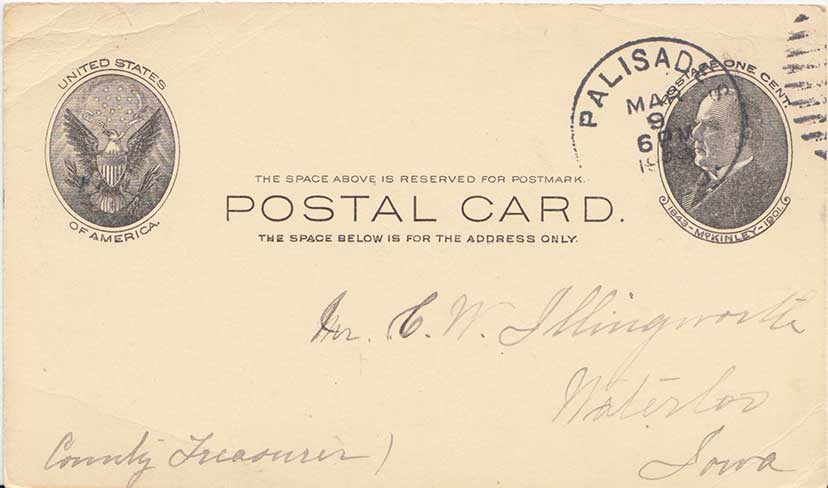 UNITED STATES
OF AMERICA.
PALISADE
MAR
9
6 PM
POSTAGE ONE CENT.
1843-McKINLEY-1901.
THE SPACE ABOVE IS RESERVED FOR POSTMARK.
POSTAL CARD.
THE SPACE BELOW IS FOR THE ADDRESS ONLY.
Mr. C. W. Illingworth
Waterloo
Iowa
County Treasurer)